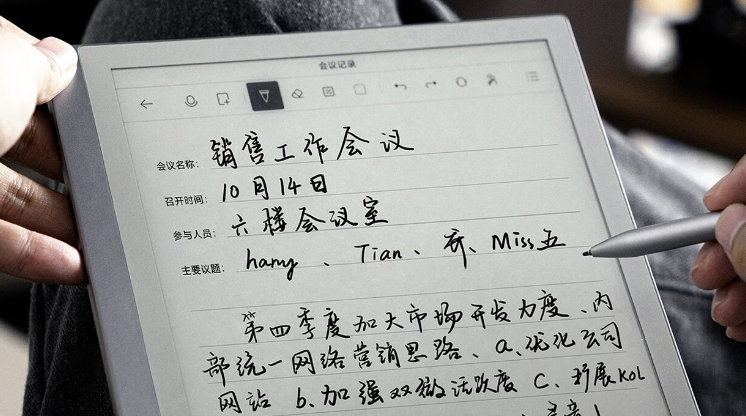 会议记录
会议名称: 销售工作会议
召开时间: 10月14日
参与人员: 六楼会议室
主要议题: hany、Tian、乔、Miss五
第四季度加大市场开发力度、内
部统一网络营销思路、a、优化公司
网站 b、加强双微活跃度 C、扩展KOL